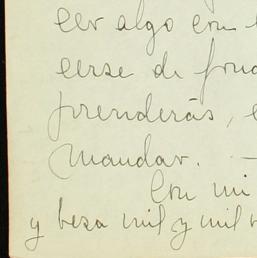 eer algo con
eerse de
prenderás,
mandar. —
Con mi
y besa mil y mil